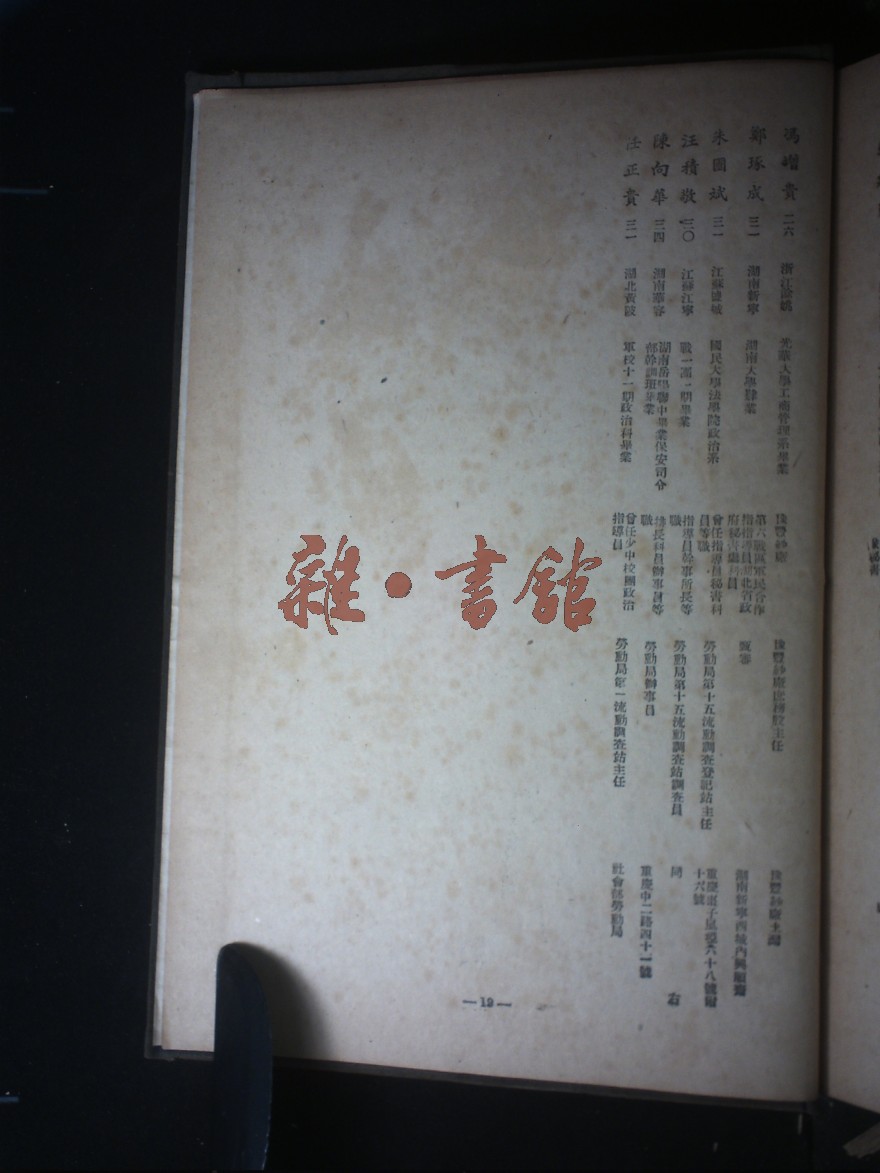 馮增貴 二六 浙江餘姚 光華大學工商管理系畢業 豫豐紗廠 豫豐紗廠 主任 豫豐紗廠
鄭琢成 三一 湖南新寧 湖南大學肄業 第六戰區軍民合作
指導員湖北省政
府秘書處科員 湖南新寧西城內興順齋
朱國斌 三一 江蘇鹽城 國民大學法學院政治系 曾任指導員秘書科
員等職 勞動局第十五流動調查登記站主任 重慶棗子嵐埡六十八號附
十六號
汪積敬 三〇 江蘇江寧 戰一團一期畢業 指導員幹事所長等
職 勞動局第十五流動調查站調查員 同右
陳向華 二四 湖南華容 湖南岳陽聯中畢業保安司令
部幹訓班畢業 科員辦事員等
職 勞動局辦事員 重慶中二路四十一號
任正貴 三一 湖北黃陂 軍校十一期政治科畢業 曾任少中校團政治
指導員 勞動局第一流動調查站主任 社會部勞動局
—19—
雜·書館